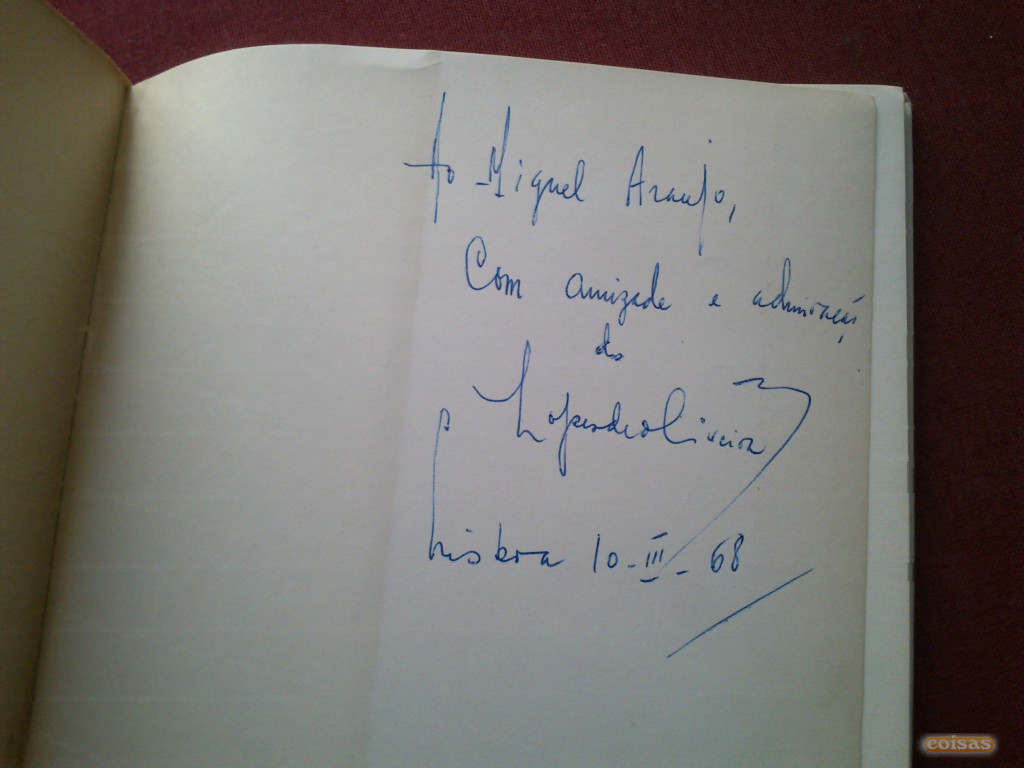 Ao Miguel Araujo,
Com amizade e admiração
do
Lopes de Oliveira
Lisboa 10-III-68
coisas